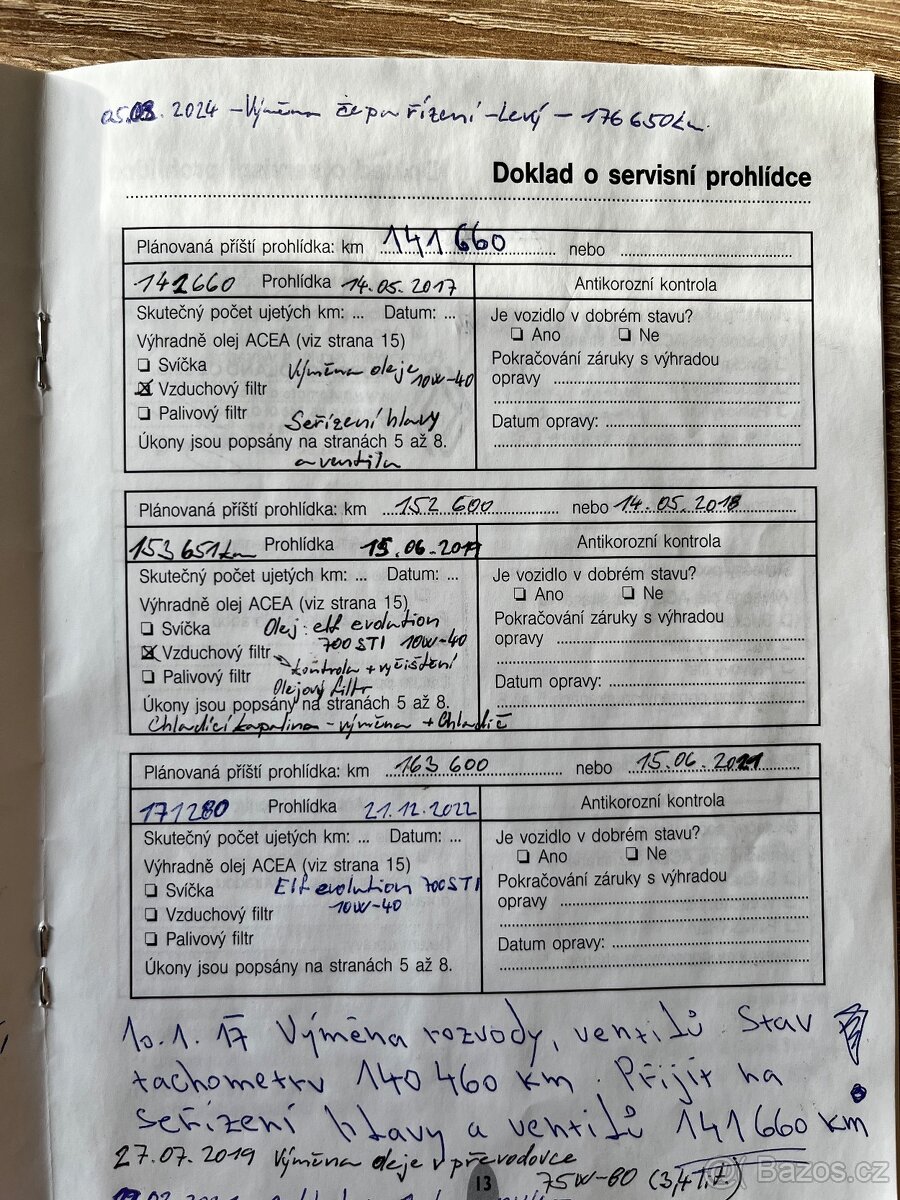 05.08.2024 - Výměna čepu řízení - Levý - 176 650km.
Doklad o servisní prohlídce
Plánovaná příští prohlídka: km 141 660 nebo
141660 Prohlídka 14.05.2017
Antikorozní kontrola
Skutečný počet ujetých km: ... Datum: ...
Výhradně olej ACEA (viz strana 15)
Svíčka Výměna oleje
Vzduchový filtr 10W-40
Palivový filtr
Seřízení hlavy
Úkony jsou popsány na stranách 5 až 8.
a ventilu
Je vozidlo v dobrém stavu?
Ano Ne
Pokračování záruky s výhradou
opravy
Datum opravy:
Plánovaná příští prohlídka: km 152 600 nebo 14.05.2018
153 651km Prohlídka 15.06.2017
Antikorozní kontrola
Skutečný počet ujetých km: ... Datum: ...
Výhradně olej ACEA (viz strana 15)
Svíčka Olej: elf evolution
700 STI 10W-40
Vzduchový filtr kontrola + vyčištění
Palivový filtr Olejový filtr
Úkony jsou popsány na stranách 5 až 8.
Chladící kapalina - výměna + Chladič
Je vozidlo v dobrém stavu?
Ano Ne
Pokračování záruky s výhradou
opravy
Datum opravy:
Plánovaná příští prohlídka: km 163 600 nebo 15.06.2021
171280 Prohlídka 21.12.2022
Antikorozní kontrola
Skutečný počet ujetých km: ... Datum: ...
Výhradně olej ACEA (viz strana 15)
Svíčka Elf evolution 700 STI
Vzduchový filtr 10W-40
Palivový filtr
Úkony jsou popsány na stranách 5 až 8.
Je vozidlo v dobrém stavu?
Ano Ne
Pokračování záruky s výhradou
opravy
Datum opravy:
10.1.17 Výměna rozvody, ventilů. Stav
tachometru 140 460 km. Přijít na
seřízení hlavy a ventilů 141 660 km !
27.07.2019 Výměna oleje v převodovce
75W-80 (3,41 l.)
13
Bazos.cz